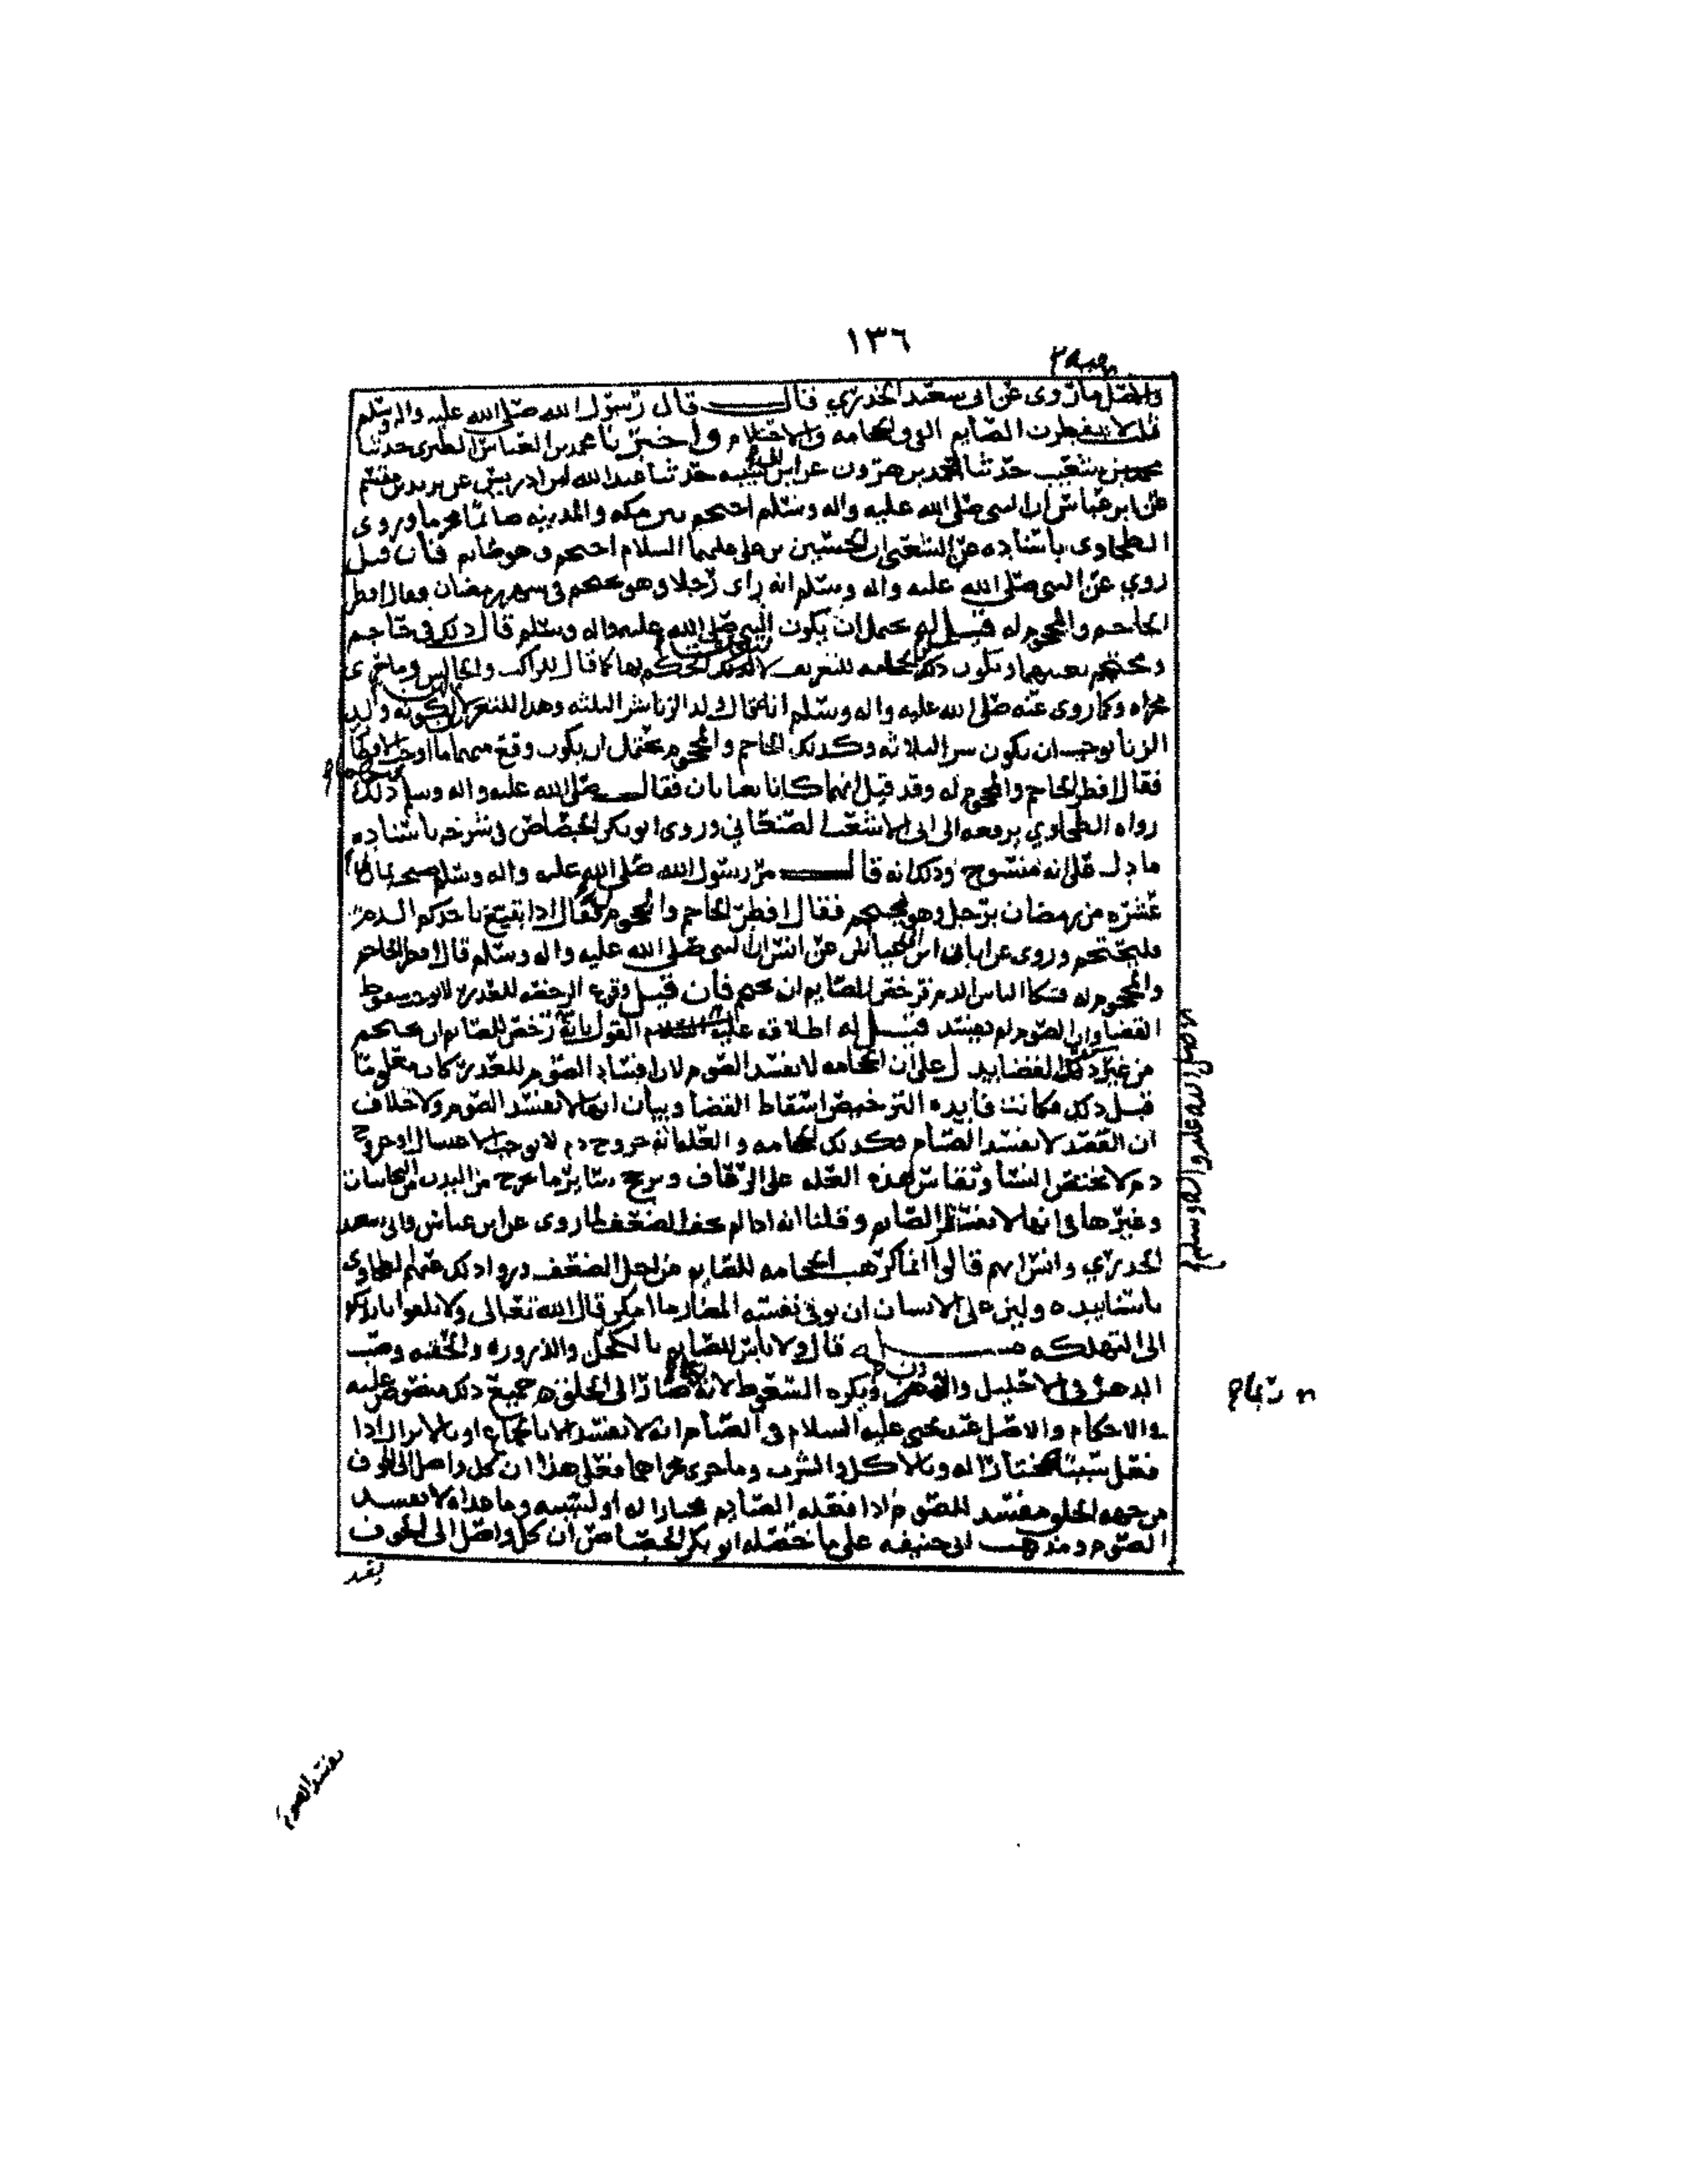 ١٣٦
والاصل ما روى عن ابي سعيد الخدري قال قال رسول الله صلى الله عليه واله وسلم
ثلاث لا يفطرن الصايم القي والحجامه والاحتلام واخبرنا محمد بن العباس الطبرى حدثنا
محمد بن شعيب حدثنا احمد بن هرون عن ابن ابي شيبه حدثنا عبدالله ابن ادريس عن يزيد عن مقسم
عن ابن عباس ان النبى صلى الله عليه واله وسلم احتجم بين مكه والمدينه صايما محرما وروى
الطحاوى باسناده عن الشعبى ان الحسين بن على عليهما السلام احتجم وهو صايم فان قيل
روي عن النبى صلى الله عليه واله وسلم انه راى رجلا وهو يحتجم فى شهر رمضان فقال افطر
الحاجم والمحجوم له قيل له يحتمل ان يكون النبي صلى الله عليه واله وسلم قال ذلك فى حاجم
ومحتجم بعينهما ويكون ذكر الحجامه للتعريف لا لتعلق الحكم بها كما قال للراكب والجالس وما جرى
مجراه وكما روى عنه صلى الله عليه واله وسلم انه قال ولد الزنا شر الثلثه وهذا للتعريف لا لكونه ولد
الزنا يوجب ان يكون شر الثلاثه وكذلك الحاجم والمحجوم يحتمل ان يكون وقع منهما ما اوجب الافطار
فقال افطر الحاجم والمحجوم له وقد قيل انهما كانا يغتابان فقال صلى الله عليه واله وسلم ذلك
رواه الطحاوي يرفعه الى ابى الاشعث الصنعاني وروى ابو بكر الجصاص فى شرحه باسناده
ما دل على انه منسوخ وذلك انه قال مر رسول الله صلى الله عليه واله وسلم صبيحة ثمان
عشره من رمضان برجل وهو يحتجم فقال افطر الحاجم والمحجوم فقال اذا تبيغ باحدكم الدم
فليحتجم وروى عن ابان ابن ابي عياش عن انس ان النبى صلى الله عليه واله وسلم قال افطر الحاجم
والمحجوم له فشكا الناس الدم فرخص للصايم ان يحتجم فان قيل وقوع الرخصه للعذر لا يوجب سقوط
القضا وان الصوم لم يفسد قيل له اطلاقه عليه السلام القول بانه رخص للصايم ان يحتجم
من غير ذكر القضا يدل على ان الحجامه لا تفسد الصوم لان افساد الصوم للعذر كان معلوما
قبل ذلك فكانت فايده الترخيص اسقاط القضا وبيان انها لا تفسد الصوم ولا خلاف
ان الفصد لا يفسد الصيام فكذلك الحجامه والعله انه خروج دم لا يوجب الاغتسال او خروج
دم لا يختص النسا وتقاس هذه العله على الرعاف وسايرما يخرج من البدن من النجاسات
وغيرها فى انها لا تفسد الصايم وقلنا انه اذا لم يخف الضعف لما روى عن ابن عباس وابى سعيد
الخدري وانس انهم قالوا انما كرهت الحجامه للصايم من اجل الضعف روا ذلك عنهم الطحاوى
باسانيده ولين على الانسان ان يوقي نفسه المضار ما امكن قال الله تعالى ولا تلقوا بايديكم
الى التهلكه مسئله قال ولا باس للصايم بالكحل والذرور والحقنه وصب
الدهن فى الاحليل والاذن ويكره السعوط لانه صار الى الحلق جميع ذلك منصوص عليه
والاحكام والاصل عند يحيى عليه السلام فى الصيام انه لا يفسد الا بالجماع او بالانزال اذا
فعل سببه مختارا له وبالاكل والشرب وما جرى مجراهما فعلى هذا ان كل واصل الى الجوف
من جهه الحلق مفسد للصوم اذا فعله الصايم مختارا له او لسببه وما عداه لا يفسد
الصوم ومذهب ابى حنيفه على ما حصله ابو بكر الجصاص ان كل واصل الى الجوف
يفسد
يفسد الصوم